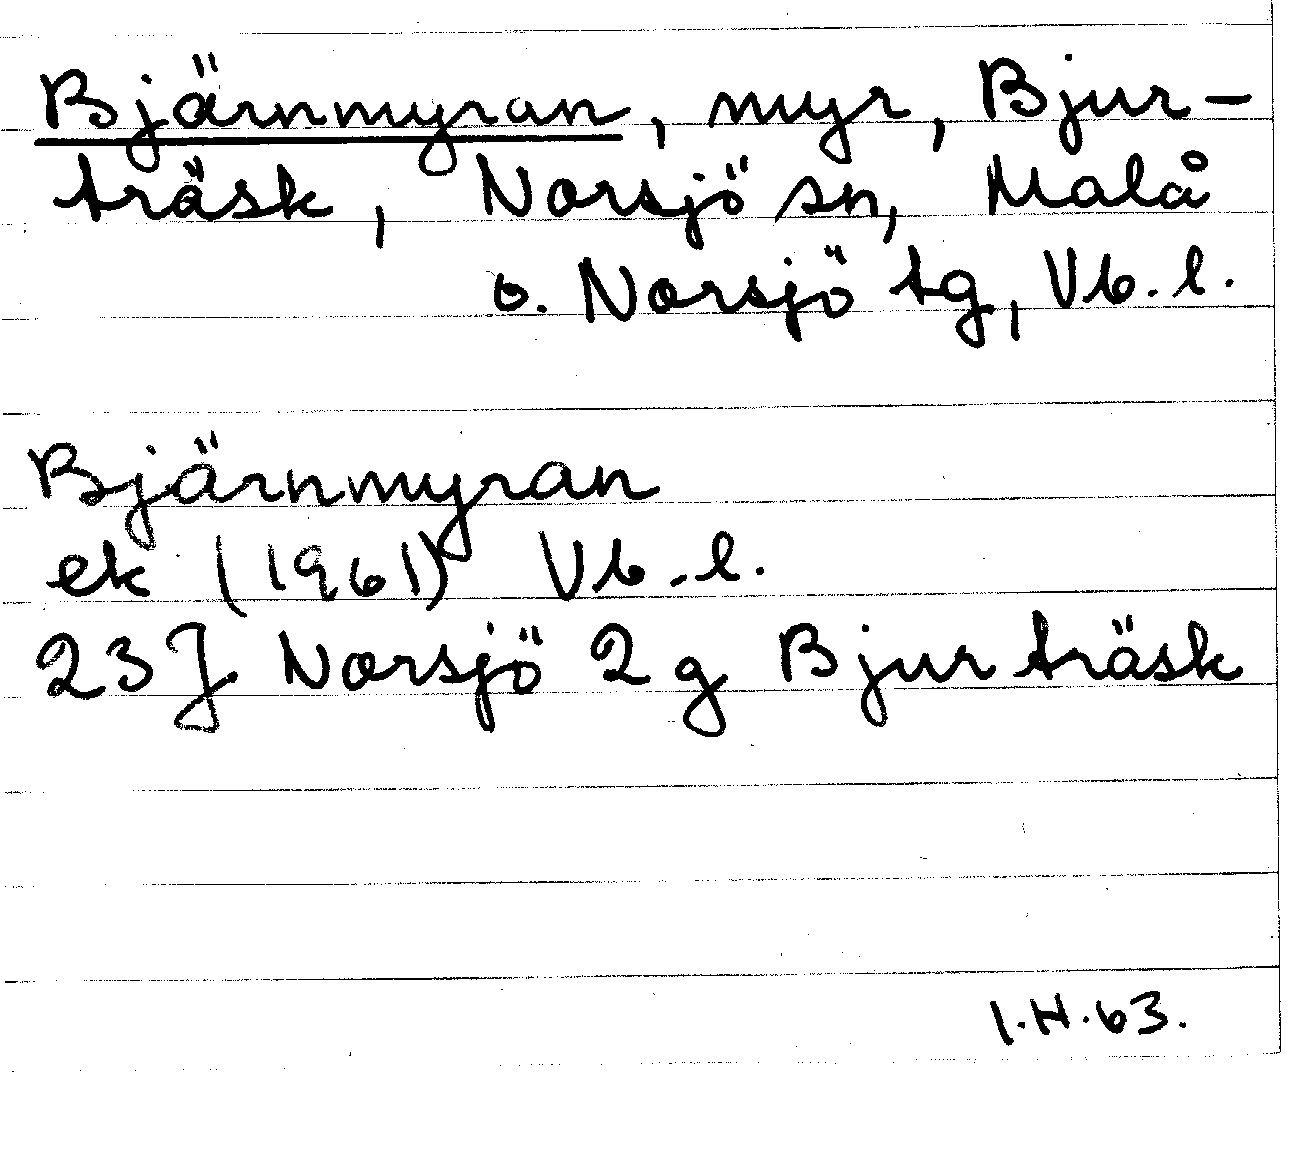 Bjärnmyran, myr, Bjur-
träsk, Norsjö sn, Malå
o. Norsjö tg, Vb. l.
Bjärnmyran
ek (1961) Vb. l.
23J Norsjö 2 g Bjurträsk
I.H.63.